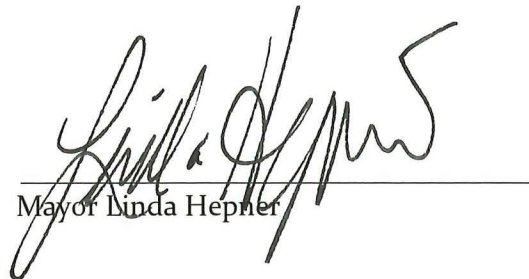 Linda Hepner
Mayor Linda Hepner